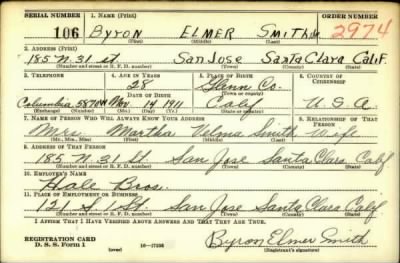 SERIAL NUMBER 1. NAME (Print) ORDER NUMBER
106 BYRON ELMER SMITH 2974
(First) (Middle) (Last)
2. ADDRESS (Print)
185 N. 31 st San Jose Santa Clara Calif.
(Number and street or R. F. D. number) (Town) (County) (State)
3. TELEPHONE 4. AGE IN YEARS 5. PLACE OF BIRTH 6. COUNTRY OF CITIZENSHIP
28 Glenn Co.
DATE OF BIRTH (Town or county)
Columbia 5870 Nov. 14 1911 Calif U.S.A.
(Exchange) (Number) (Mo.) (Day) (Yr.) (State or country)
7. NAME OF PERSON WHO WILL ALWAYS KNOW YOUR ADDRESS 8. RELATIONSHIP OF THAT PERSON
Mrs. Martha Velma Smith Wife
(Mr., Mrs., Miss) (First) (Middle) (Last)
9. ADDRESS OF THAT PERSON
185 N. 31 St. San Jose Santa Clara Calif
(Number and street or R. F. D. number) (Town) (County) (State)
10. EMPLOYER'S NAME
Hale Bros.
11. PLACE OF EMPLOYMENT OR BUSINESS
121 S. 1 St. San Jose Santa Clara Calif.
(Number and street or R. F. D. number) (Town) (County) (State)
I AFFIRM THAT I HAVE VERIFIED ABOVE ANSWERS AND THAT THEY ARE TRUE.
REGISTRATION CARD
D. S. S. Form 1 (over) Byron Elmer Smith
(Registrant's signature)